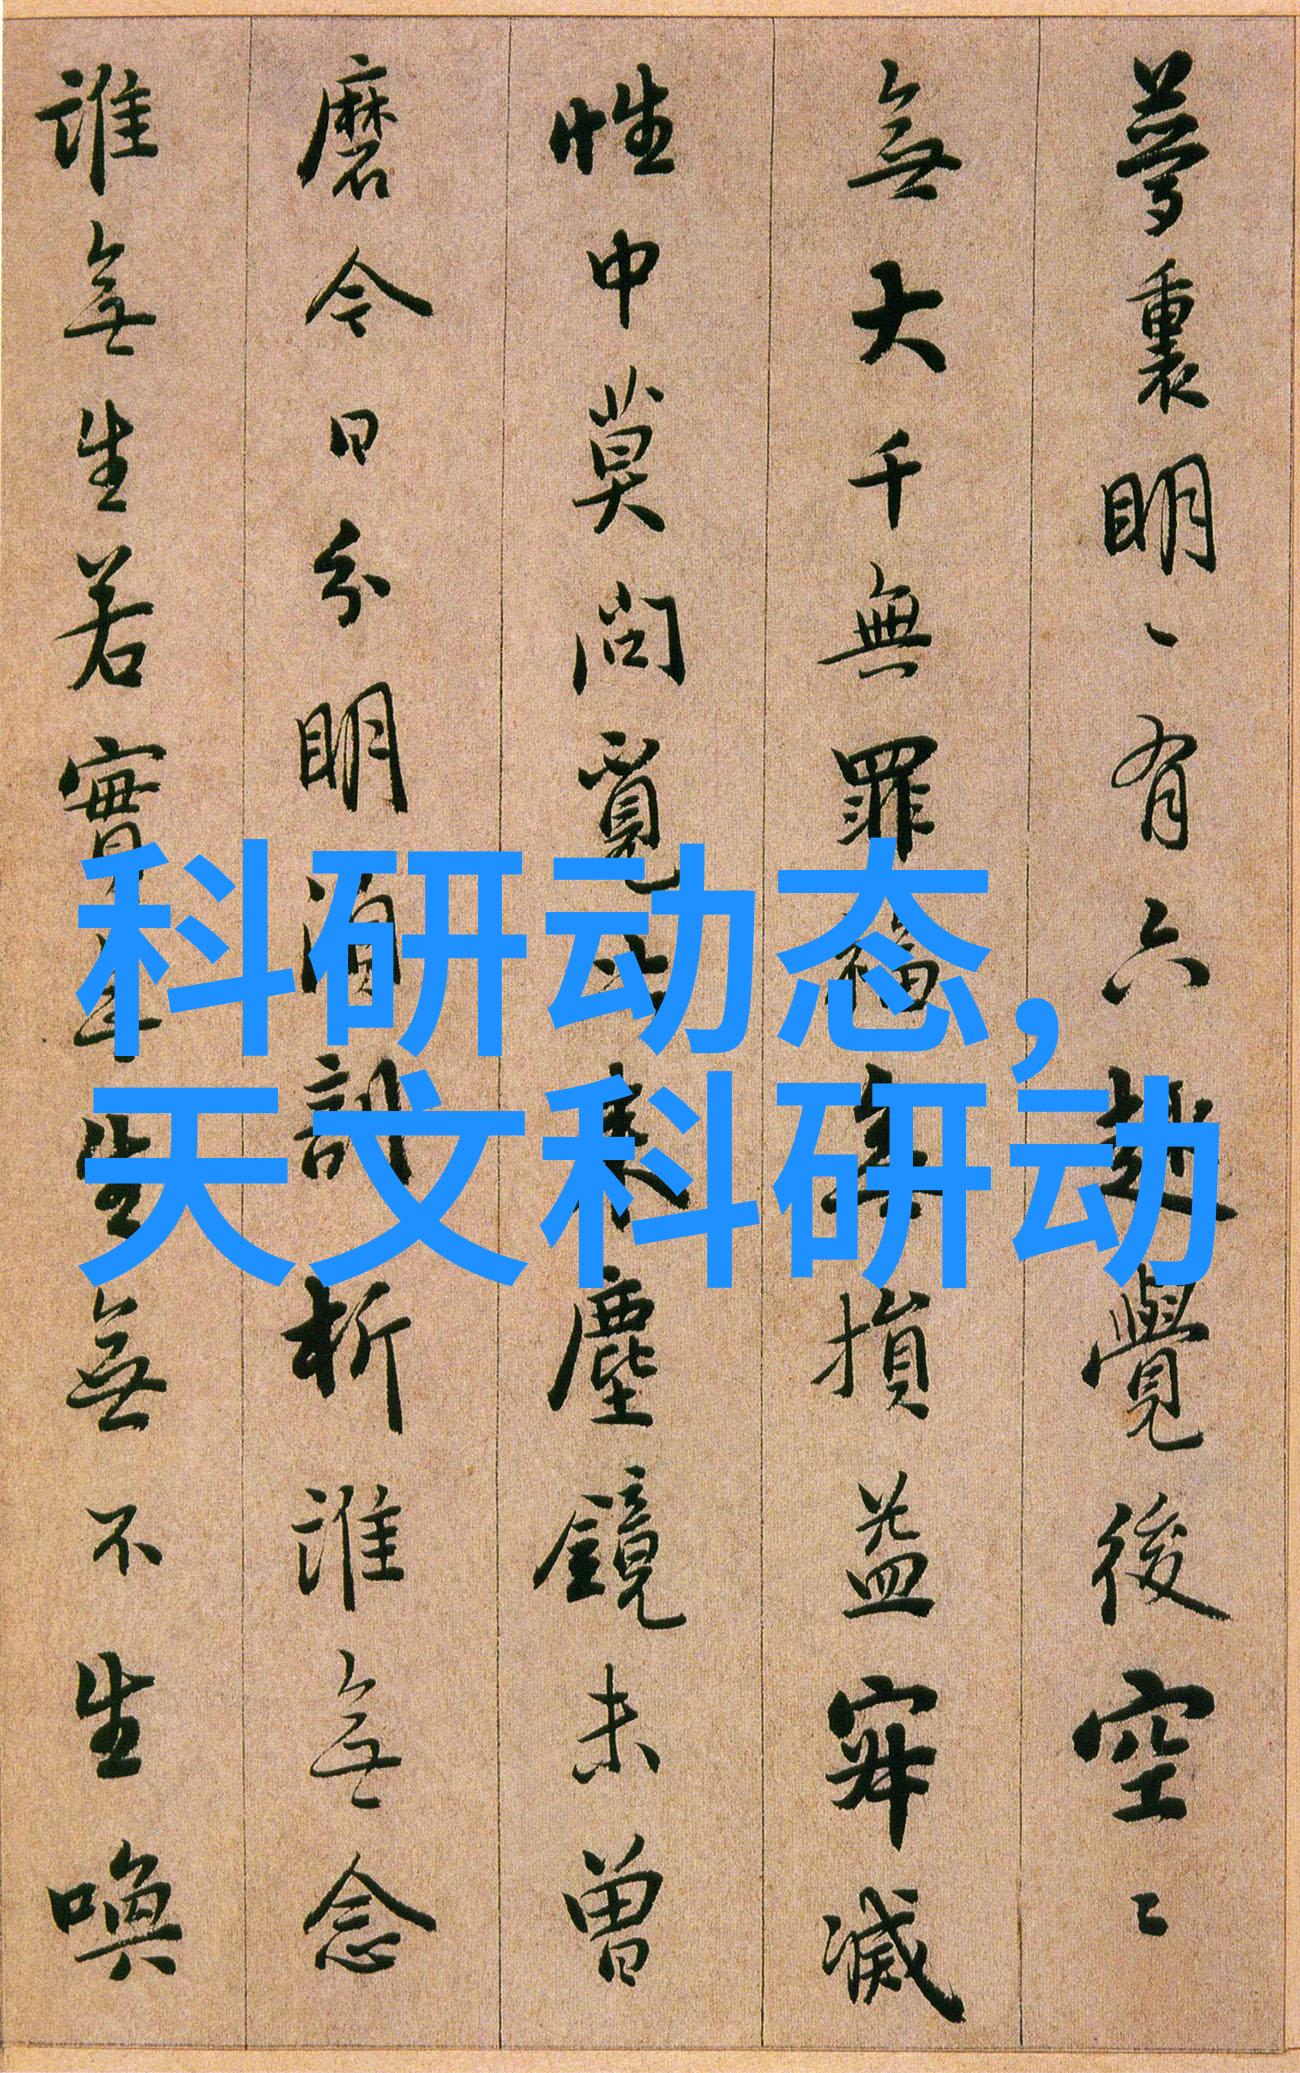 夢裏明〻有六趣覺後空〻
無大千無罪福無損益寂滅
性中莫問覓比來塵鏡未曾
磨今日分明須剖析誰無念
誰無生若實無生無不生喚
科研动态,
天文科研动